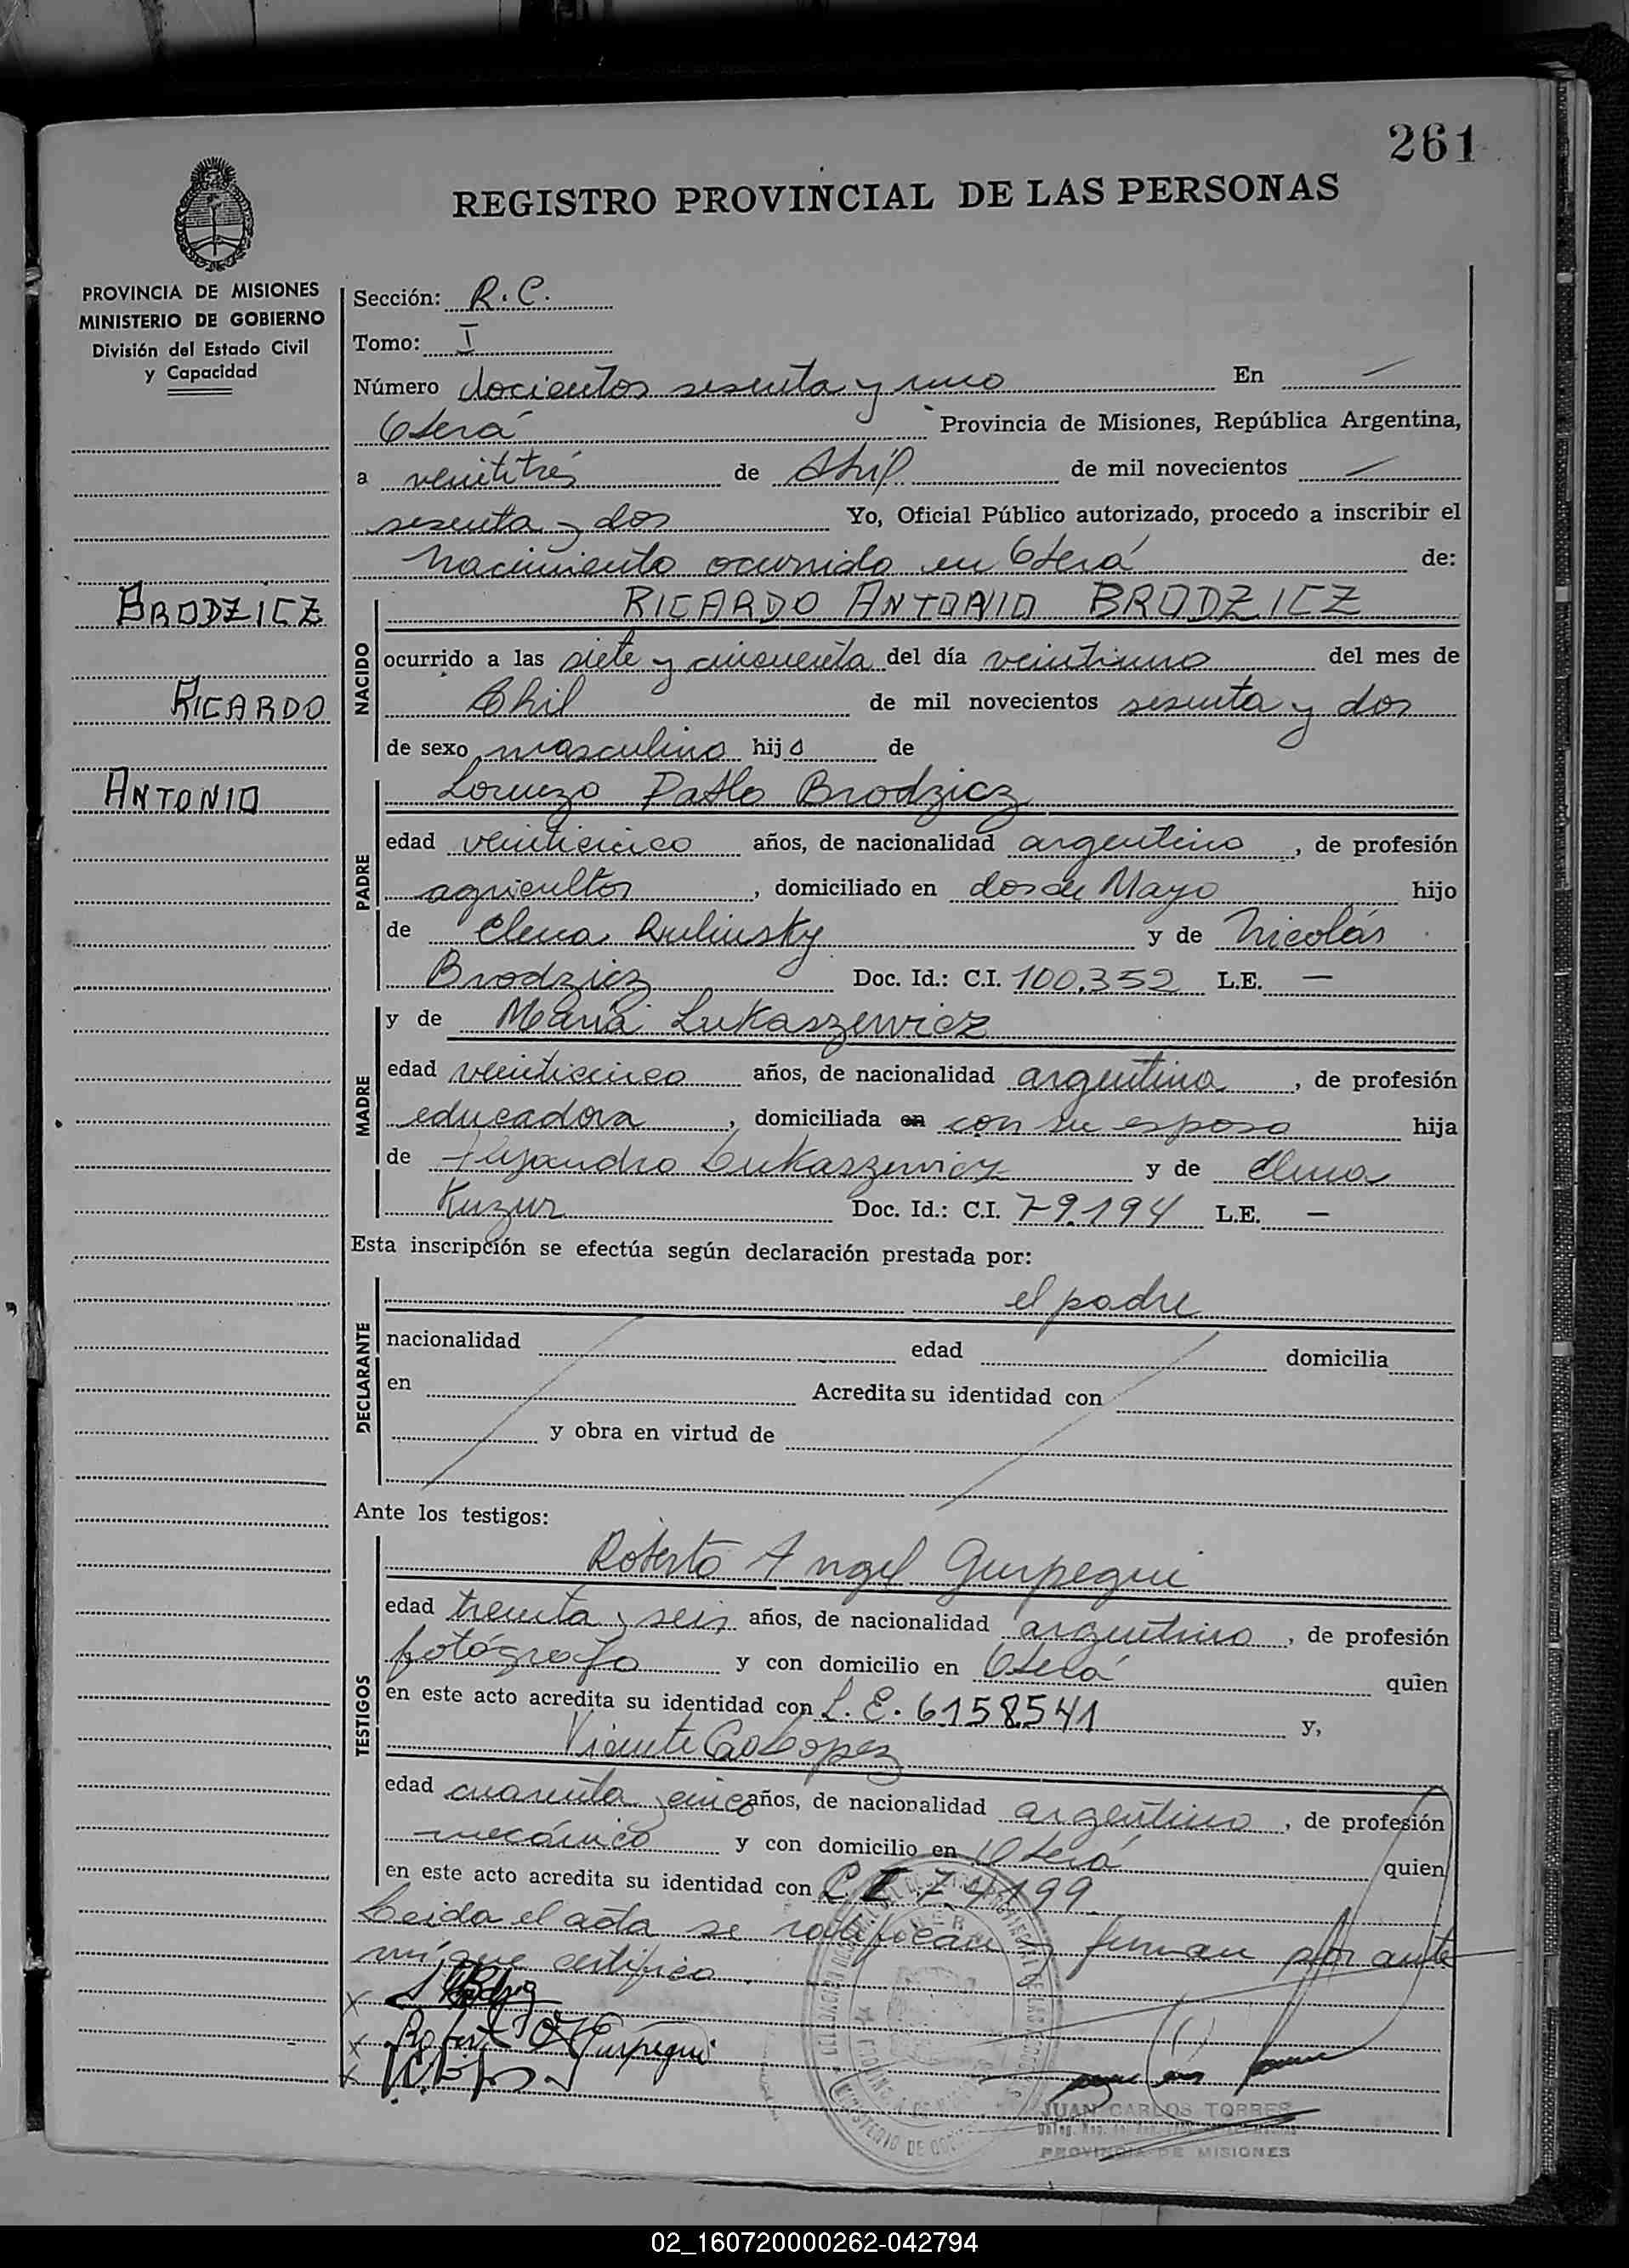 261
REGISTRO PROVINCIAL DE LAS PERSONAS
PROVINCIA DE MISIONES
MINISTERIO DE GOBIERNO
División del Estado Civil
y Capacidad
BRODZICZ
RICARDO
ANTONIO
Sección: R. C.
Tomo: I
Número docientos sesenta y uno En
Oberá Provincia de Misiones, República Argentina,
a veintitrés de Abril de mil novecientos
sesenta y dos Yo, Oficial Público autorizado, procedo a inscribir el
nacimiento ocurrido en Oberá de:
NACIDO
RICARDO ANTONIO BRODZICZ
ocurrido a las siete y cincuenta del día veintiuno del mes de
Abril de mil novecientos sesenta y dos
de sexo masculino hijo de
PADRE
Lorenzo Pablo Brodzicz
edad veinticinco años, de nacionalidad argentino, de profesión
agricultor, domiciliado en dos de Mayo hijo
de Elena Rulinsky y de Nicolás
Brodzicz Doc. Id.: C.I. 100.352 L.E. —
MADRE
y de María Lukaszewicz
edad veinticinco años, de nacionalidad argentina, de profesión
educadora, domiciliada en con su esposo hija
de Alejandro Lukaszewicz y de Elena
Kuzur Doc. Id.: C.I. 79.194 L.E. —
Esta inscripción se efectúa según declaración prestada por:
DECLARANTE
el padre
nacionalidad edad domicilia
en Acredita su identidad con
y obra en virtud de
Ante los testigos:
TESTIGOS
Roberto Angel Gurpegui
edad treinta y seis años, de nacionalidad argentino, de profesión
fotógrafo y con domicilio en Oberá quien
en este acto acredita su identidad con L. E. 6.158.541 y,
Vicente Lopez
edad cuarenta y cinco años, de nacionalidad argentino, de profesión
mecánico y con domicilio en Oberá quien
en este acto acredita su identidad con C. I. 74199
Leida el acta se ratifican y firman por ante
mí que certifico.
Gurpegui
JUAN CARLOS TORRES
PROVINCIA DE MISIONES
02_160720000262-042794